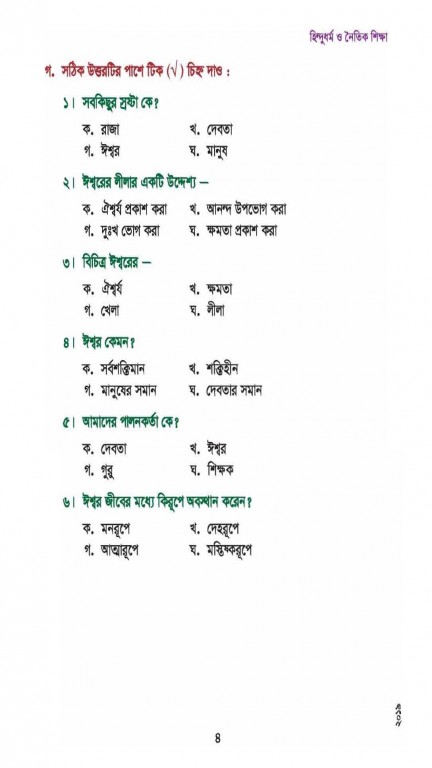 হিন্দুধর্ম ও নৈতিক শিক্ষা
গ. সঠিক উত্তরটির পাশে টিক (√) চিহ্ন দাও :
১। সবকিছুর স্রষ্টা কে?
ক. রাজা খ. দেবতা
গ. ঈশ্বর ঘ. মানুষ
২। ঈশ্বরের লীলার একটি উদ্দেশ্য –
ক. ঐশ্বর্য প্রকাশ করা খ. আনন্দ উপভোগ করা
গ. দুঃখ ভোগ করা ঘ. ক্ষমতা প্রকাশ করা
৩। বিচিত্র ঈশ্বরের –
ক. ঐশ্বর্য খ. ক্ষমতা
গ. খেলা ঘ. লীলা
৪। ঈশ্বর কেমন?
ক. সর্বশক্তিমান খ. শক্তিহীন
গ. মানুষের সমান ঘ. দেবতার সমান
৫। আমাদের পালনকর্তা কে?
ক. দেবতা খ. ঈশ্বর
গ. গুরু ঘ. শিক্ষক
৬। ঈশ্বর জীবের মধ্যে কিরূপে অবস্থান করেন?
ক. মনরূপে খ. দেহরূপে
গ. আত্মারূপে ঘ. মস্তিষ্করূপে
২০১৯
৪